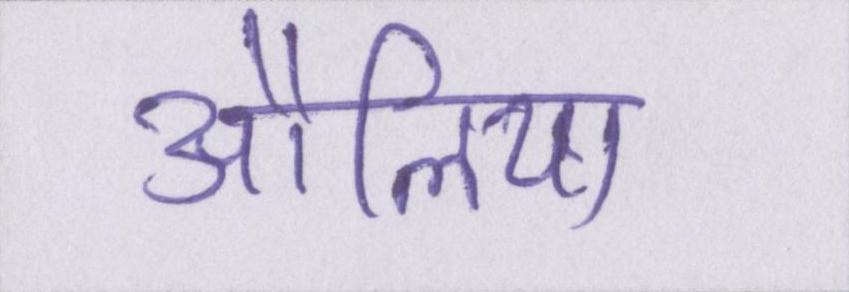 औलिया